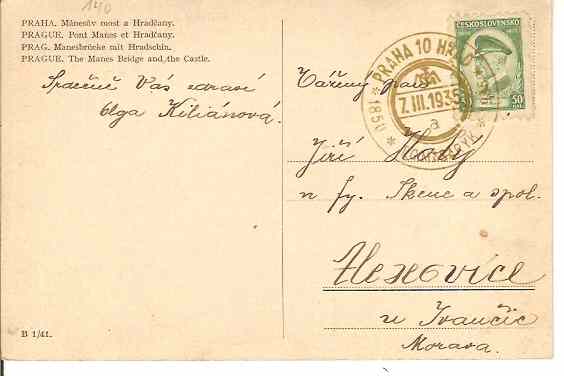 140
PRAHA. Mánesův most a Hradčany.
PRAGUE. Pont Manes et Hradčany.
PRAG. Manesbrücke mit Hradschin.
PRAGUE. The Manes Bridge and the Castle.
Srdečně Vás zdraví
Olga Kiliánová.
B 1/41.
ČESKOSLOVENSKO
50
PRAHA 10 HRAD
7.III.1935
a
* 1850 *
MASARYK
Vážený pan
Jiří
u fy. Skene a spol.
Alexovice
u Ivančic
Morava.